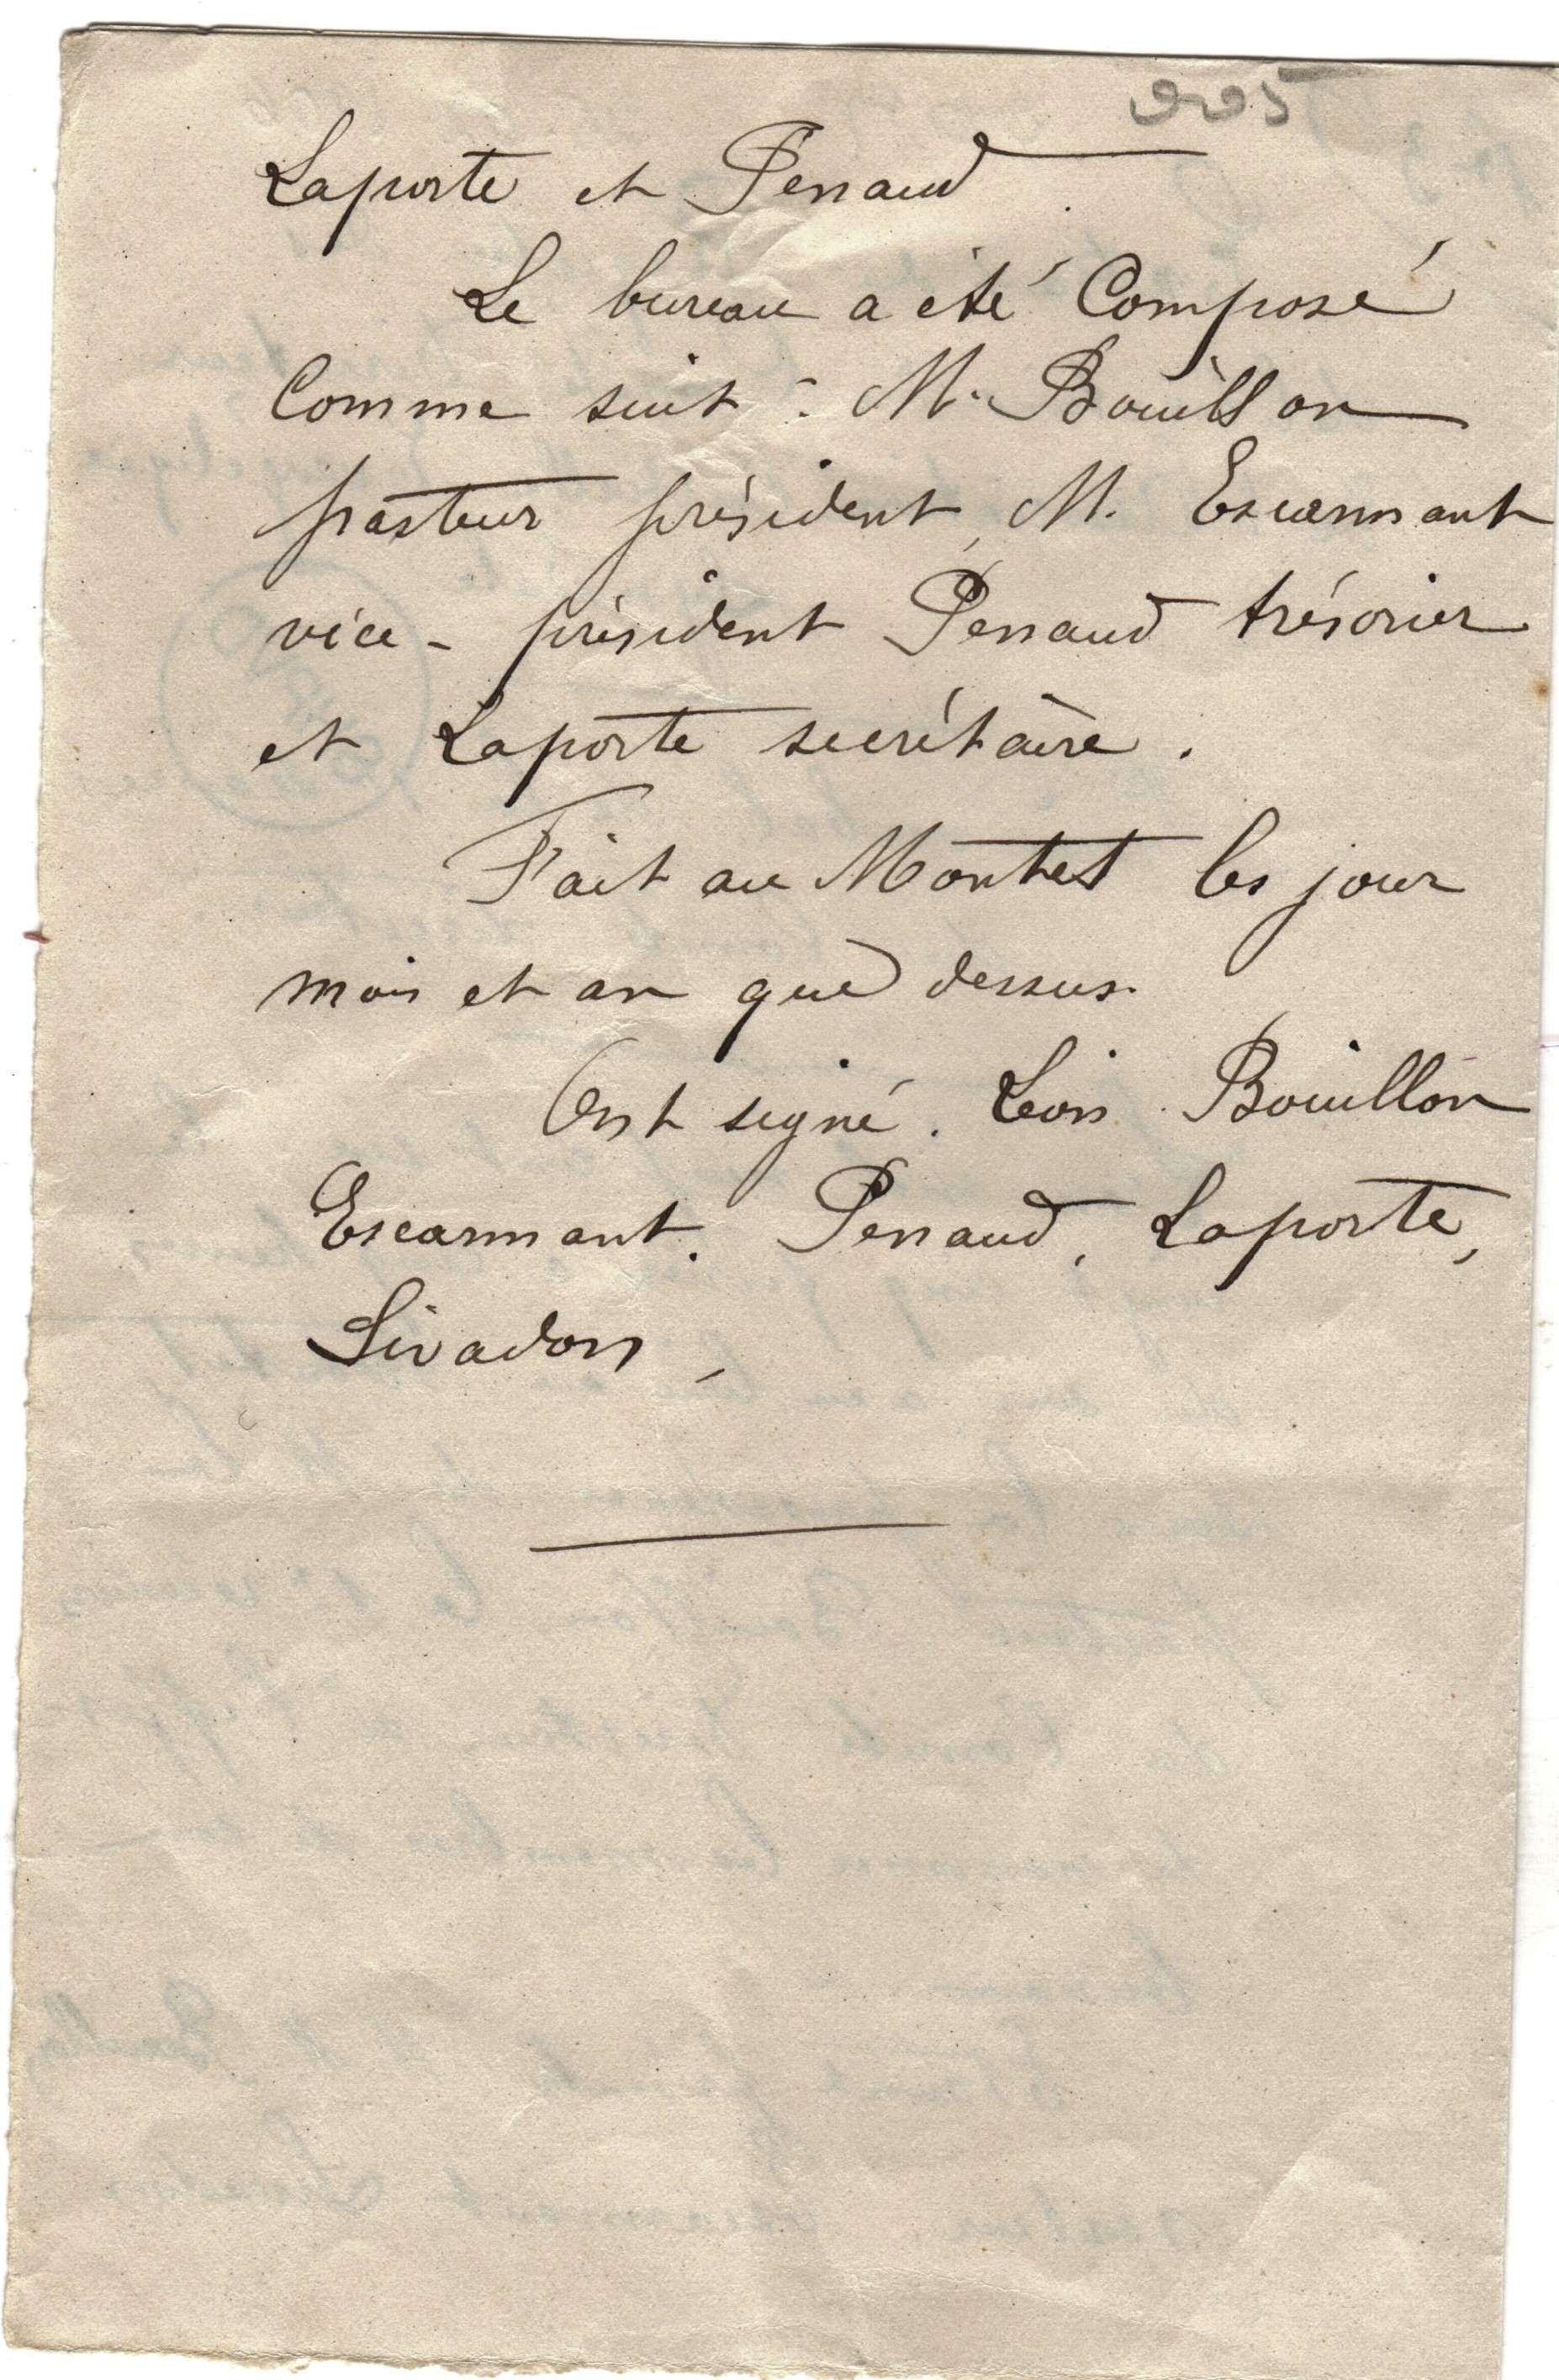 Laporte et Penaud.
Le bureau a été Composé
Comme suit : M. Bouillon
pasteur président, M. Escarmant
vice - président Penaud trésorier
et Laporte secrétaire.
Fait au Montet les jour
mois et an que dessus.
Ont signé. Léon Bouillon
Escarmant. Penaud, Laporte,
Livadon,